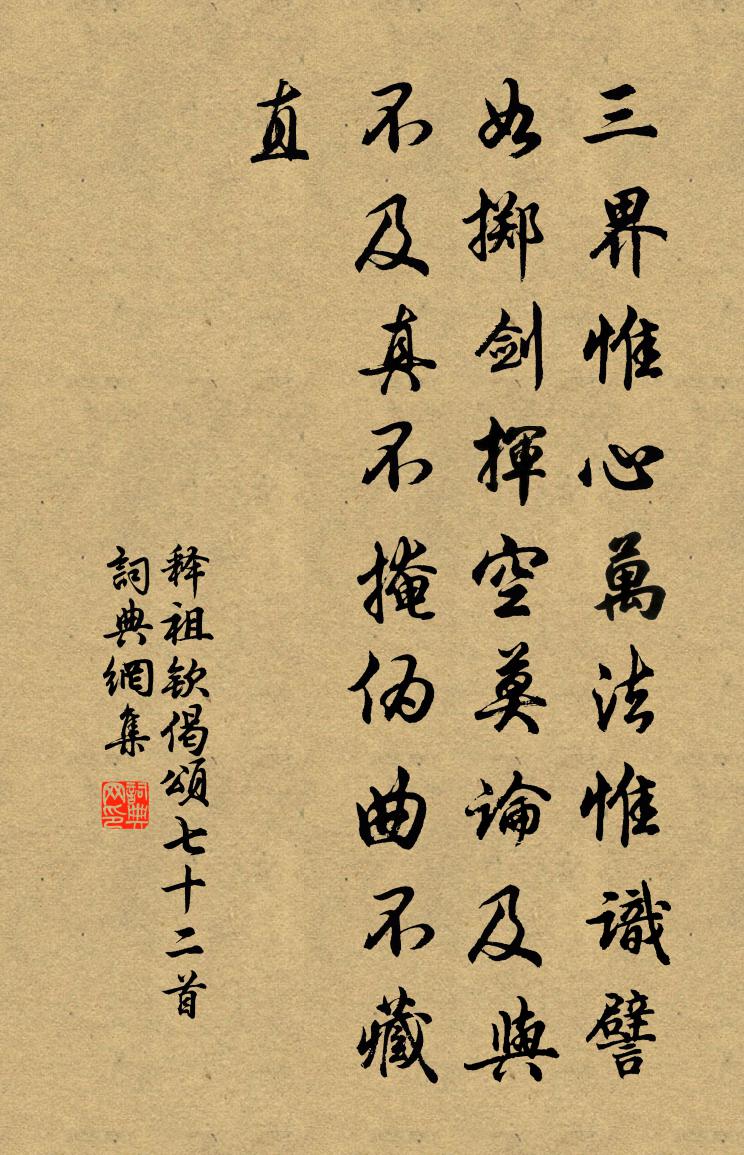 三界惟心萬法惟識譬
如掷剑揮空莫論及與
不及真不掩伪曲不藏
直
释祖钦偈頌七十二首
詞典網集
詞典网印